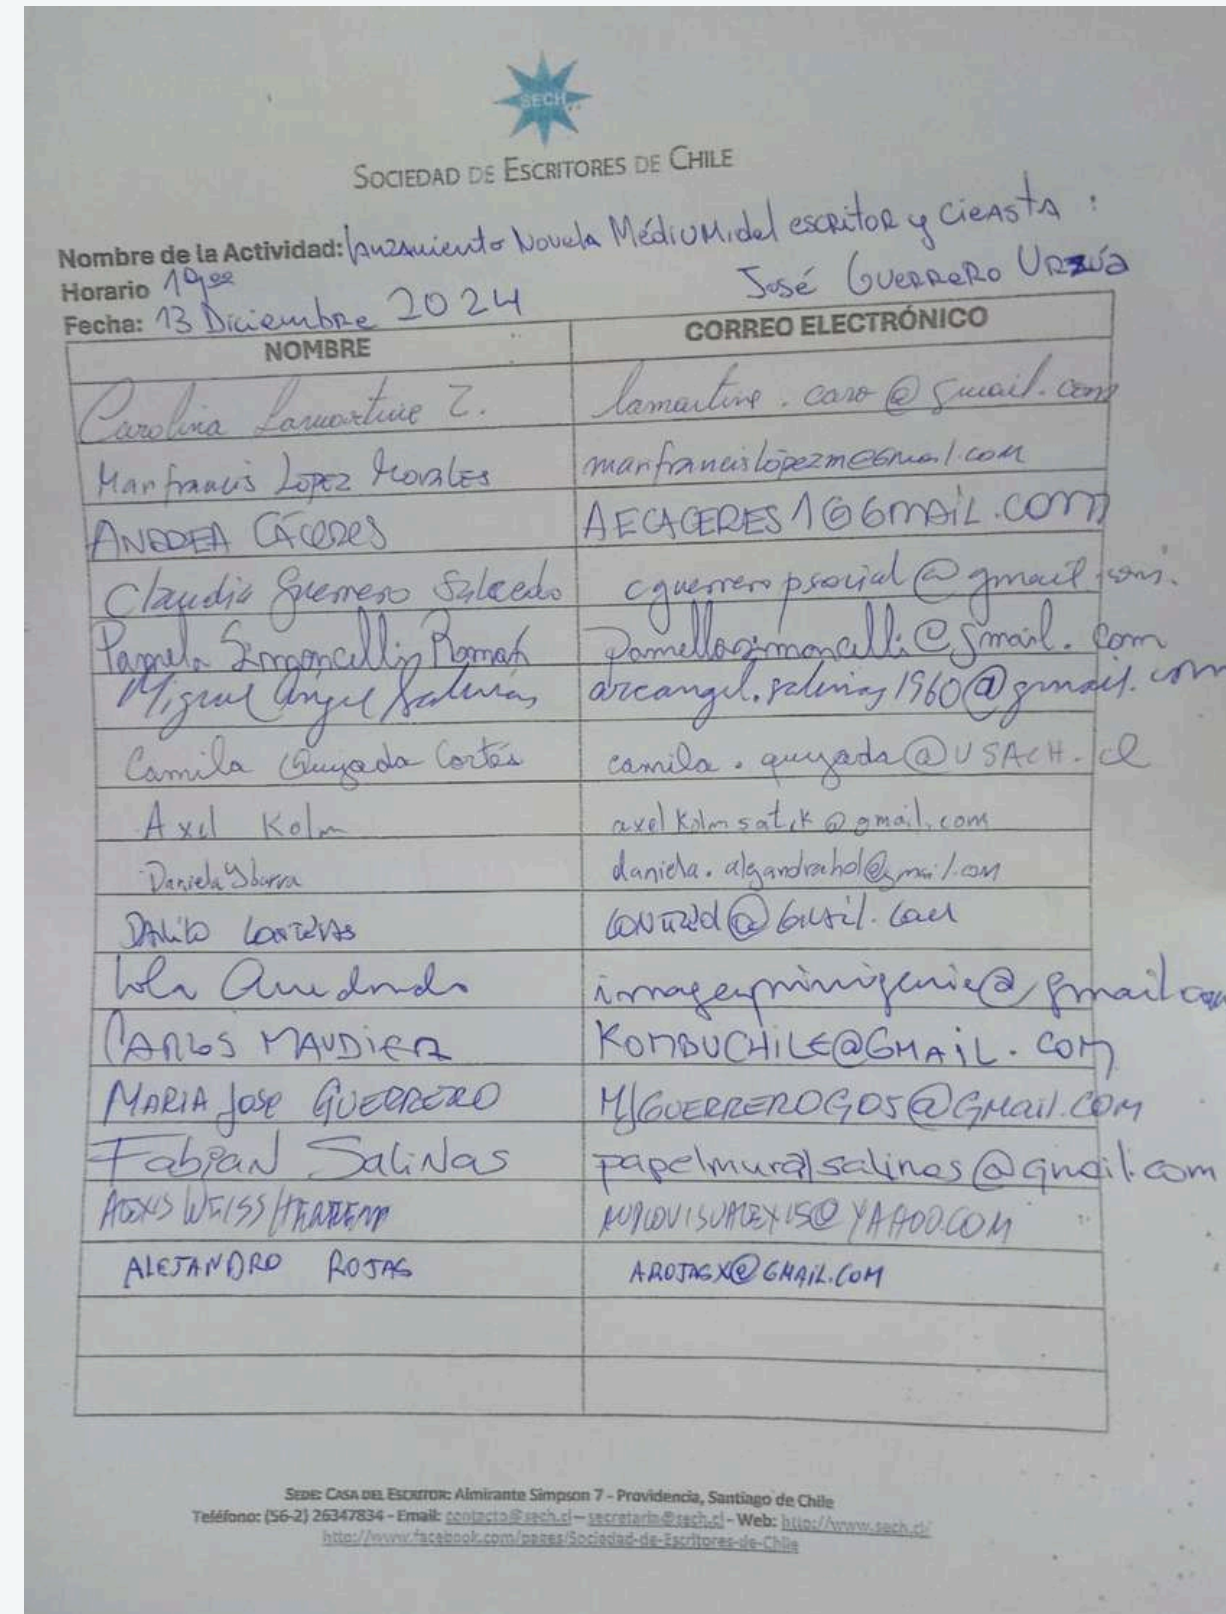 SECH
SOCIEDAD DE ESCRITORES DE CHILE
Nombre de la Actividad: lanzamiento Novela Médium, del escritor y CieAstA :
José Guerrero Urzúa
Horario 19:00
Fecha: 13 Diciembre 2024
NOMBRE CORREO ELECTRÓNICO
Carolina Lamartine Z. lamartine.caro@gmail.com
Marfrancis Lopez Morales marfrancislópezm@Gmail.com
ANDREA CÁCERES AECACERES1@GmAiL.com
Claudia Guerrero Salcedo cguerreropsocial@gmail.com.
Pamela Simoncelli Román Pamellasimoncelli@gmail.com
Miguel Angel Salinas arcangel.salinas1960@gmail.com
Camila Quijada Cortés camila.quijada@USACH.cl
Axel Kolm axelkolmsatik@gmail.com
Daniela Ybarra daniela.alejandrahol@gmail.com
DANILO CONTRERAS
Lola imagenprimigenia@gmail.com
CARLOS MAUDIER KOMBUCHILE@GMAiL.COM
MARIA JOSE GUERRERO MJGUERREROG05@GMail.COM
FabiaN SaliNas papelmuralsalinas@gmail.com
ALEXIS WEISS HERRERA AUDIOVISUALEXIS@YAHOO.COM
ALEJANDRO ROJAS AROJASX@GMAiL.COM
SEDE: CASA DEL ESCRITOR: Almirante Simpson 7 - Providencia, Santiago de Chile
Teléfono: (56-2) 26347834 - Email: contacto@sech.cl – secretaria@sech.cl - Web: http://www.sech.cl/
http://www.facebook.com/pages/Sociedad-de-Escritores-de-Chile